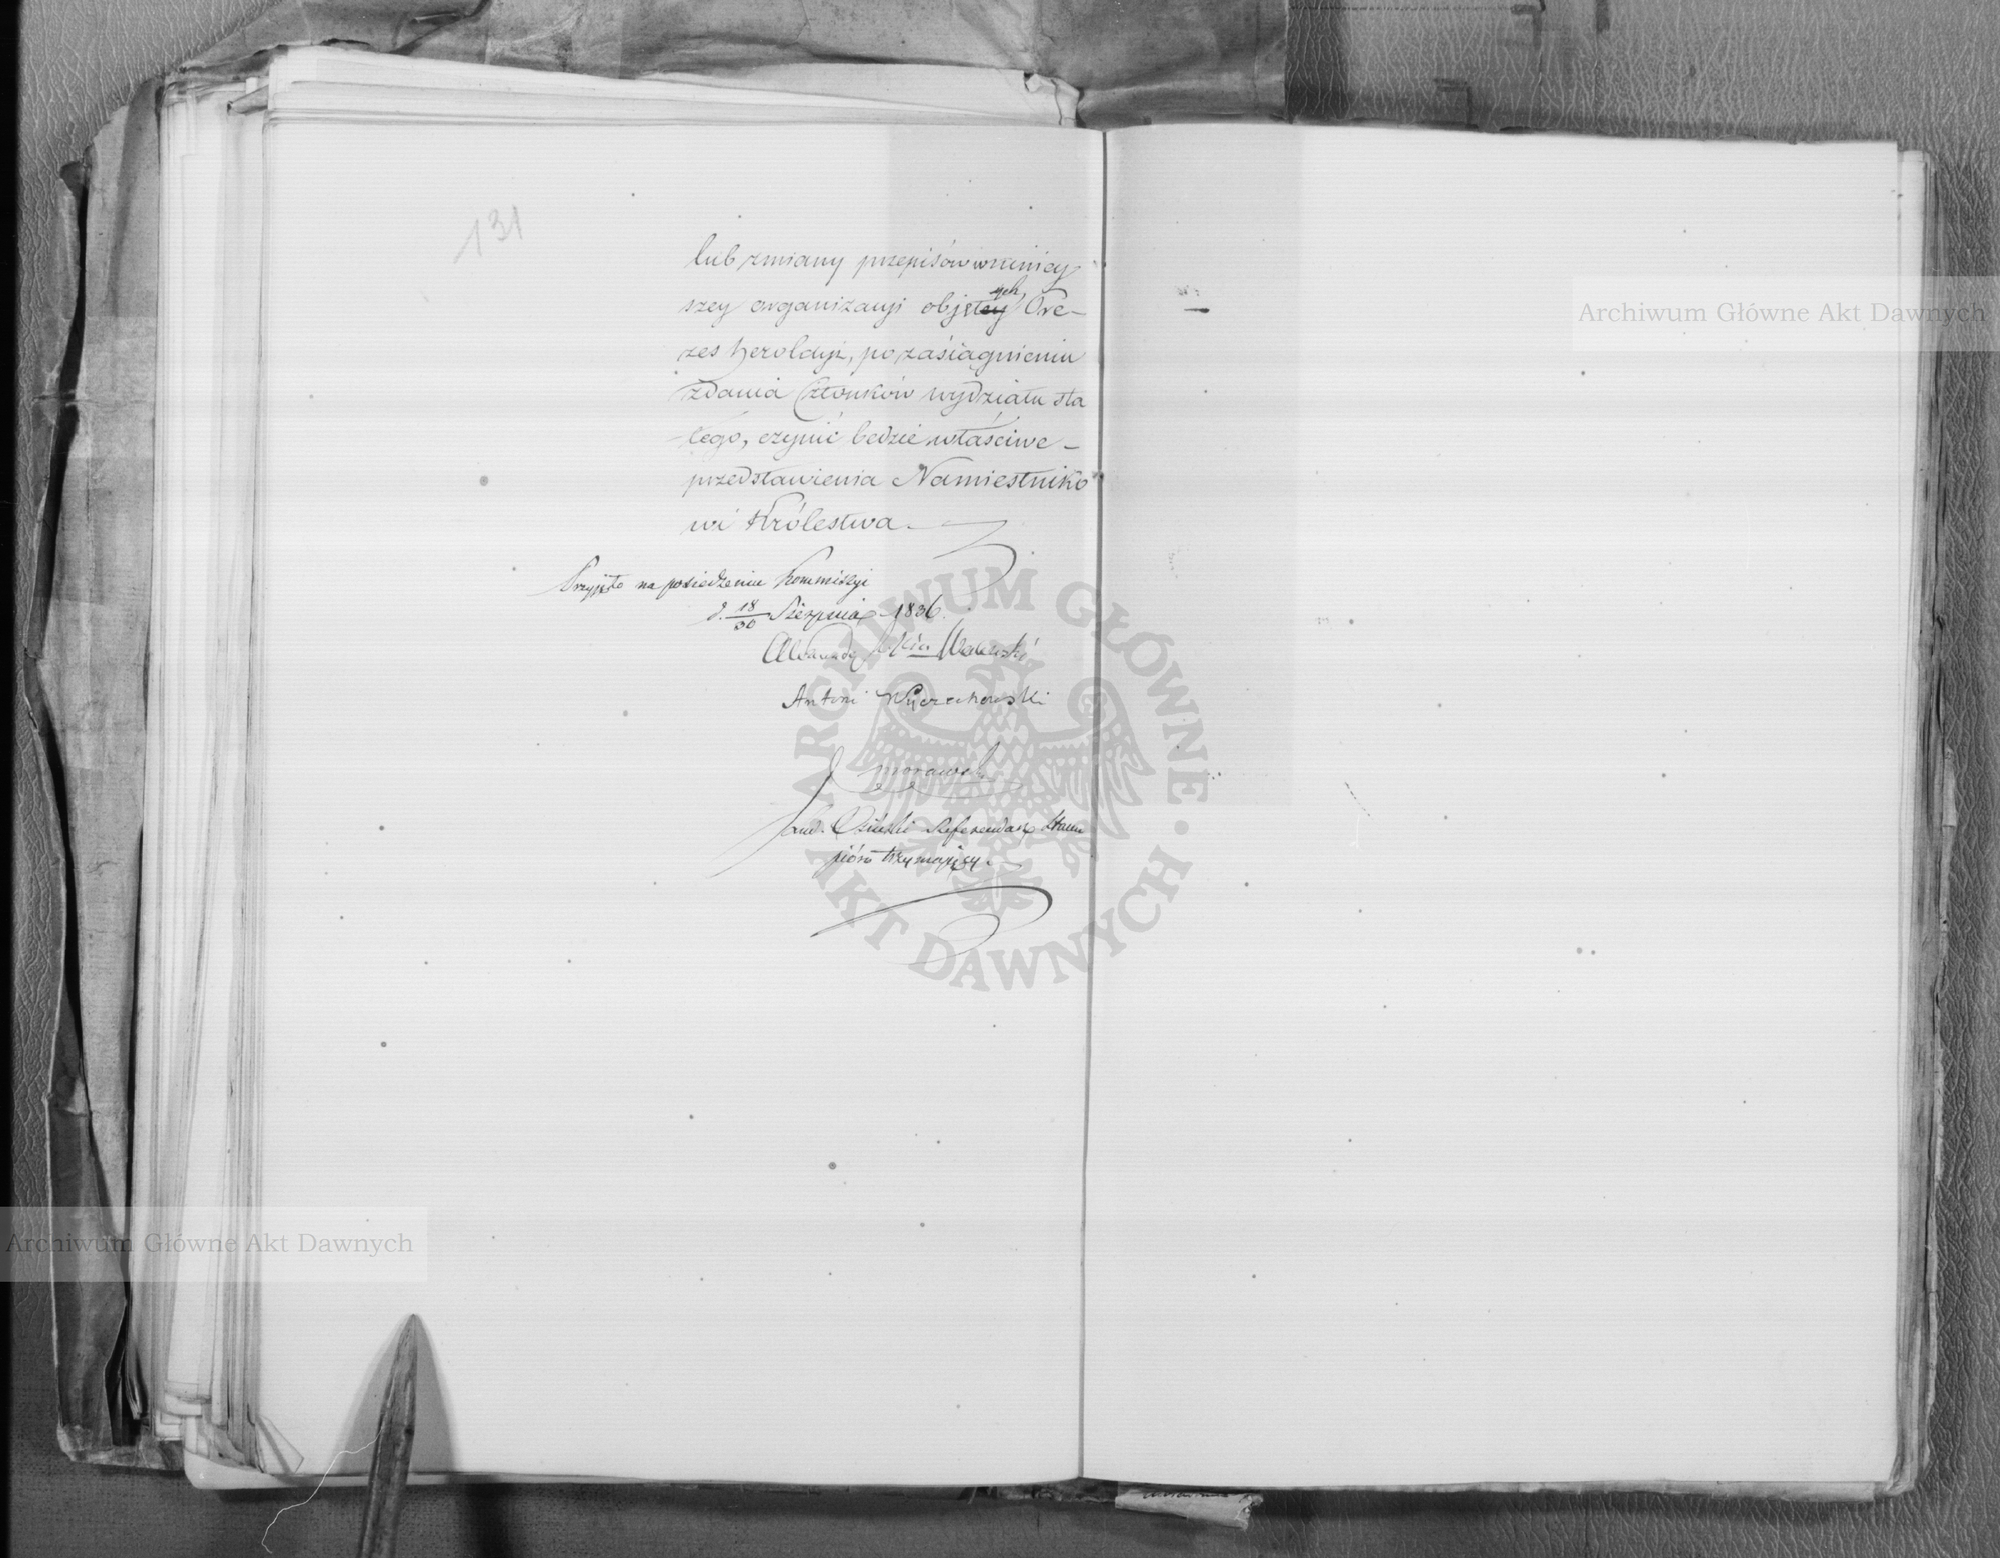 131
lub zmiany przepisów w niniey
szey organizacyi objętych Pre-
zes heroldyi, po zasiągnieniu
zdania Członków wydziału sta
łego, czynić będzie właściwe
przedstawienia Namiestniko
wi Królestwa.
Przyjęto na posiedzeniu Kommissyi
d. 18/30 Sierpnia 1836.
Antoni Wyczechowski
Morawski
Osiński Referendarz Stanu
pióro trzymający.
Archiwum Główne Akt Dawnych
Archiwum Główne Akt Dawnych
ARCHIWUM GŁÓWNE AKT DAWNYCH